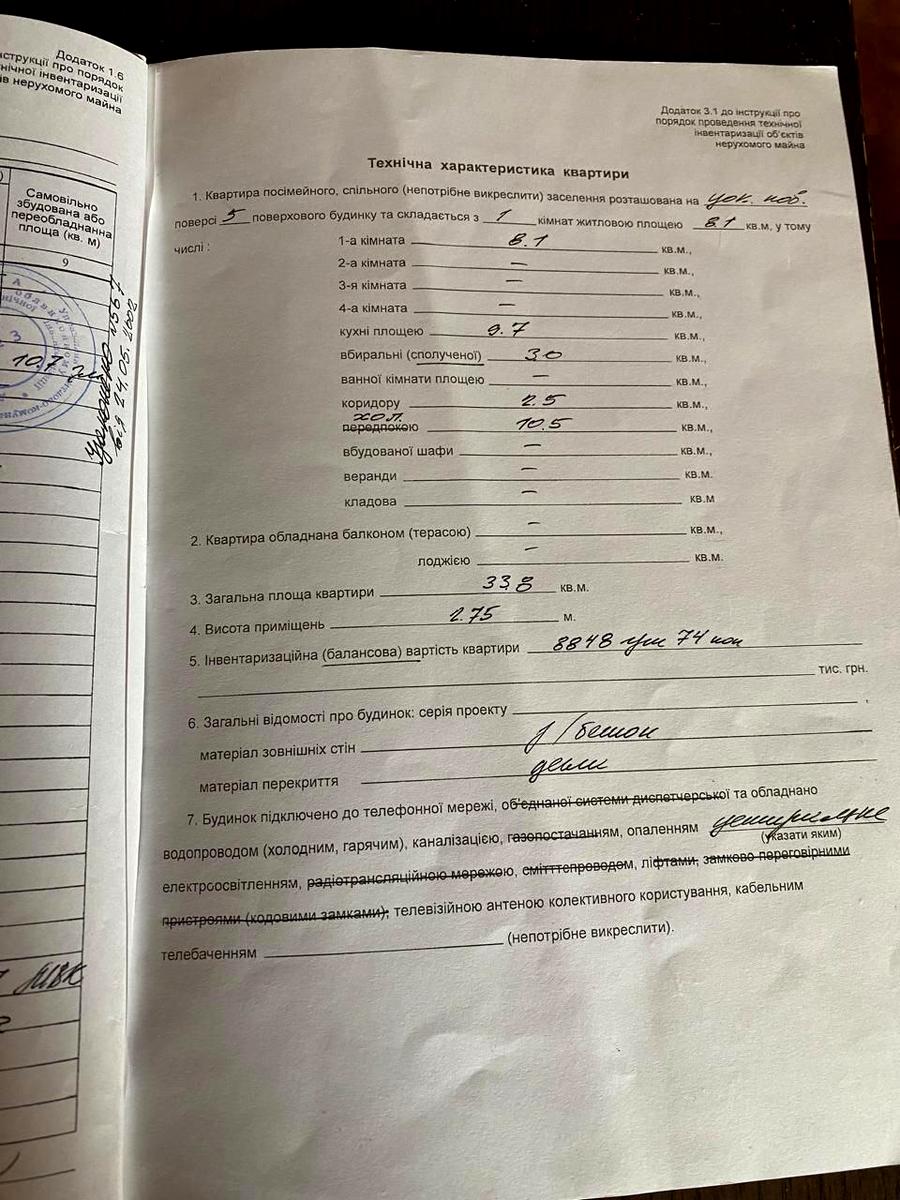 Додаток 1.6
нструкції про порядок
нічної інвентаризації
ів нерухомого майна
Самовільно
збудована або
переобладнанна
площа (кв. м)
9
10.7
Узаконено N567
від 24.05.2002
МВК
Додаток 3.1 до інструкції про
порядок проведення технічної
інвентаризації об'єктів
нерухомого майна
Технічна характеристика квартири
1. Квартира посімейного, спільного (непотрібне викреслити) заселення розташована на цок. пов.
поверсі 5 поверхового будинку та складається з 1 кімнат житловою площею 8.1 кв.м, у тому
числі :
1-а кімната 8.1 кв.м.,
2-а кімната — кв.м.,
3-я кімната — кв.м.,
4-а кімната — кв.м.,
кухні площею 9.7 кв.м.,
вбиральні (сполученої) 3.0 кв.м.,
ванної кімнати площею — кв.м.,
коридору 2.5 кв.м.,
хол
передпокою 10.5 кв.м.,
вбудованої шафи — кв.м.,
веранди — кв.м.
кладова — кв.м
2. Квартира обладнана балконом (терасою) — кв.м.,
лоджією — кв.м.
3. Загальна площа квартири 33.8 кв.м.
4. Висота приміщень 2.75 м.
5. Інвентаризаційна (балансова) вартість квартири 8848 грн 74 коп
тис. грн.
6. Загальні відомості про будинок: серія проекту .
матеріал зовнішніх стін /бетон
матеріал перекриття
7. Будинок підключено до телефонної мережі, об'єднаної системи диспетчерської та обладнано
водопроводом (холодним, гарячим), каналізацією, газопостачанням, опаленням центральне
(указати яким)
електроосвітленням, радіотрансляційною мережою, сміттєпроводом, ліфтами, замково переговірними
пристроями (кодовими замками); телевізійною антеною колективного користування, кабельним
телебаченням (непотрібне викреслити).